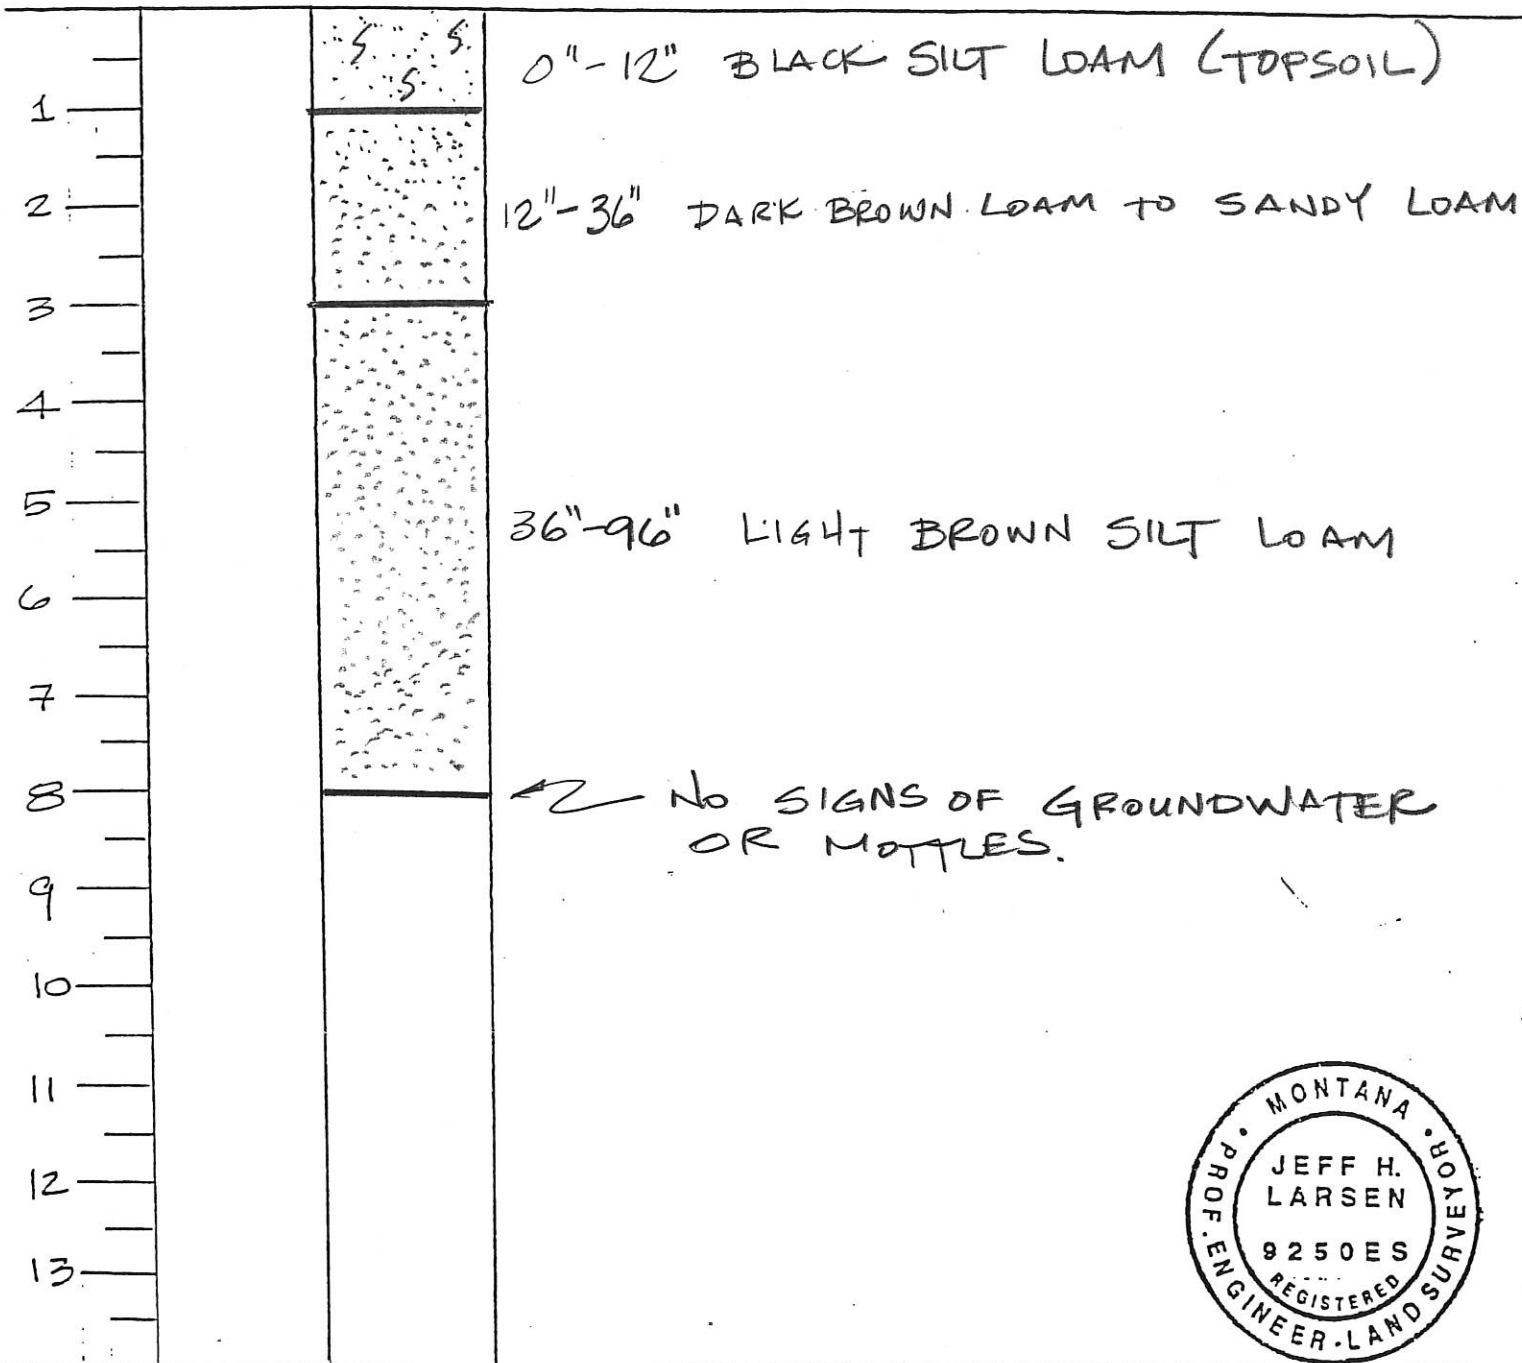 0"-12" BLACK SILT LOAM (TOPSOIL)
1
2
12"-36" DARK BROWN LOAM TO SANDY LOAM
3
4
5
36"-96" LIGHT BROWN SILT LOAM
6
7
8
NO SIGNS OF GROUNDWATER
OR MOTTLES.
9
10
11
12
13
MONTANA
JEFF H.
LARSEN
9250ES
REGISTERED
PROF. ENGINEER · LAND SURVEYOR